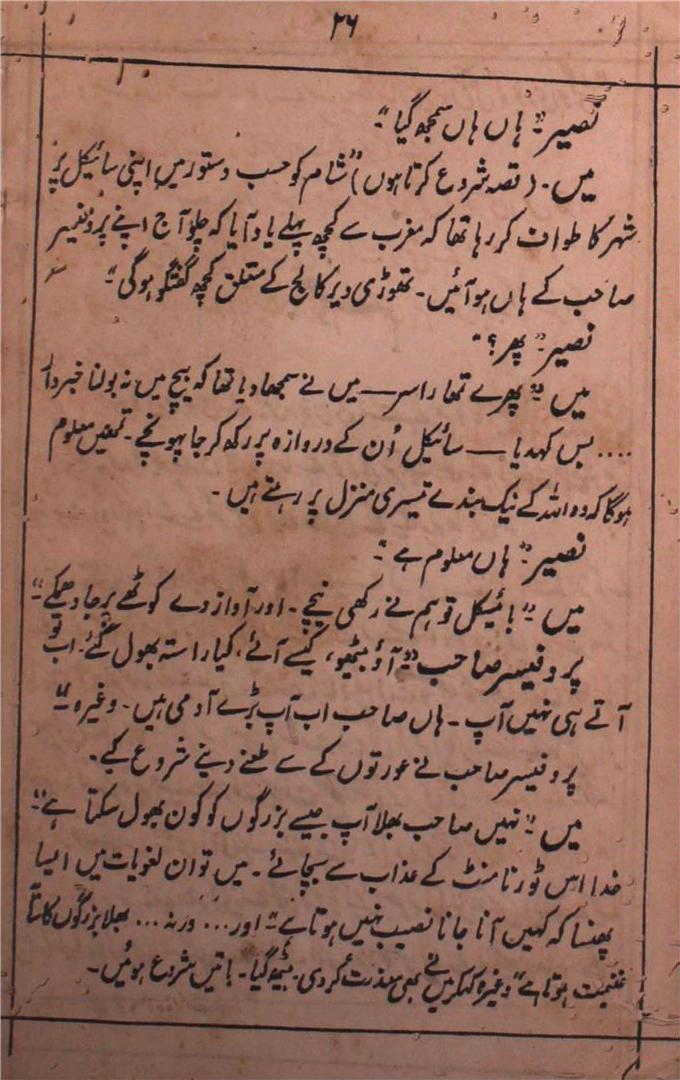 ۲۶
نصیر۔" ہاں ہاں سمجھ گیا"۔
میں۔ (قصہ شروع کرتا ہوں) "شام کو حسب دستور میں اپنی سائیکل پر
شہر کا طواف کر رہا تھا کہ مغرب سے کچھ پہلے یاد آیا کہ چلو آج اپنے پروفیسر
صاحب کے ہاں ہو آئیں۔ تھوڑی دیر کالج کے متعلق کچھ گفتگو ہوگی"۔
نصیر۔" پھر؟"
میں۔" پھرے تمھارا سر — میں نے سمجھا دیا تھا کہ بیچ میں نہ بولنا خبردار
.... بس کہدیا — سائیکل اُن کے دروازہ پر رکھ کر جا پہونچے۔ تمھیں معلوم
ہوگا کہ وہ اللہ کے نیک بندے تیسری منزل پر رہتے ہیں۔
نصیر۔" ہاں معلوم ہے"۔
میں۔" بائیکل تو ہم نے رکھی نیچے۔ اور آواز دے کوٹھے پر جا دھمکے"۔
پروفیسر صاحب" آؤ بیٹھو، کیسے آئے، کیا راستہ بھول گئے۔ اب تو
آتے ہی نہیں آپ۔ ہاں صاحب اب آپ بڑے آدمی ہیں۔ وغیرہ"
پروفیسر صاحب نے عورتوں کے سے طعنے دینے شروع کیے۔
میں۔" نہیں صاحب بھلا آپ جیسے بزرگوں کو کون بھول سکتا ہے"۔
خدا اس ٹورنامنٹ کے عذاب سے بچائے۔ میں تو ان لغویات میں ایسا
پھنسا کہ کہیں آنا جانا نصیب نہیں ہوتا ہے" اور... ورنہ... بھلا بزرگوں کا
غنیمت ہوتا ہے" وغیرہ کہکر میں نے بھی معذرت کر دی۔ بیٹھ گیا۔ باتیں شروع ہوئیں۔